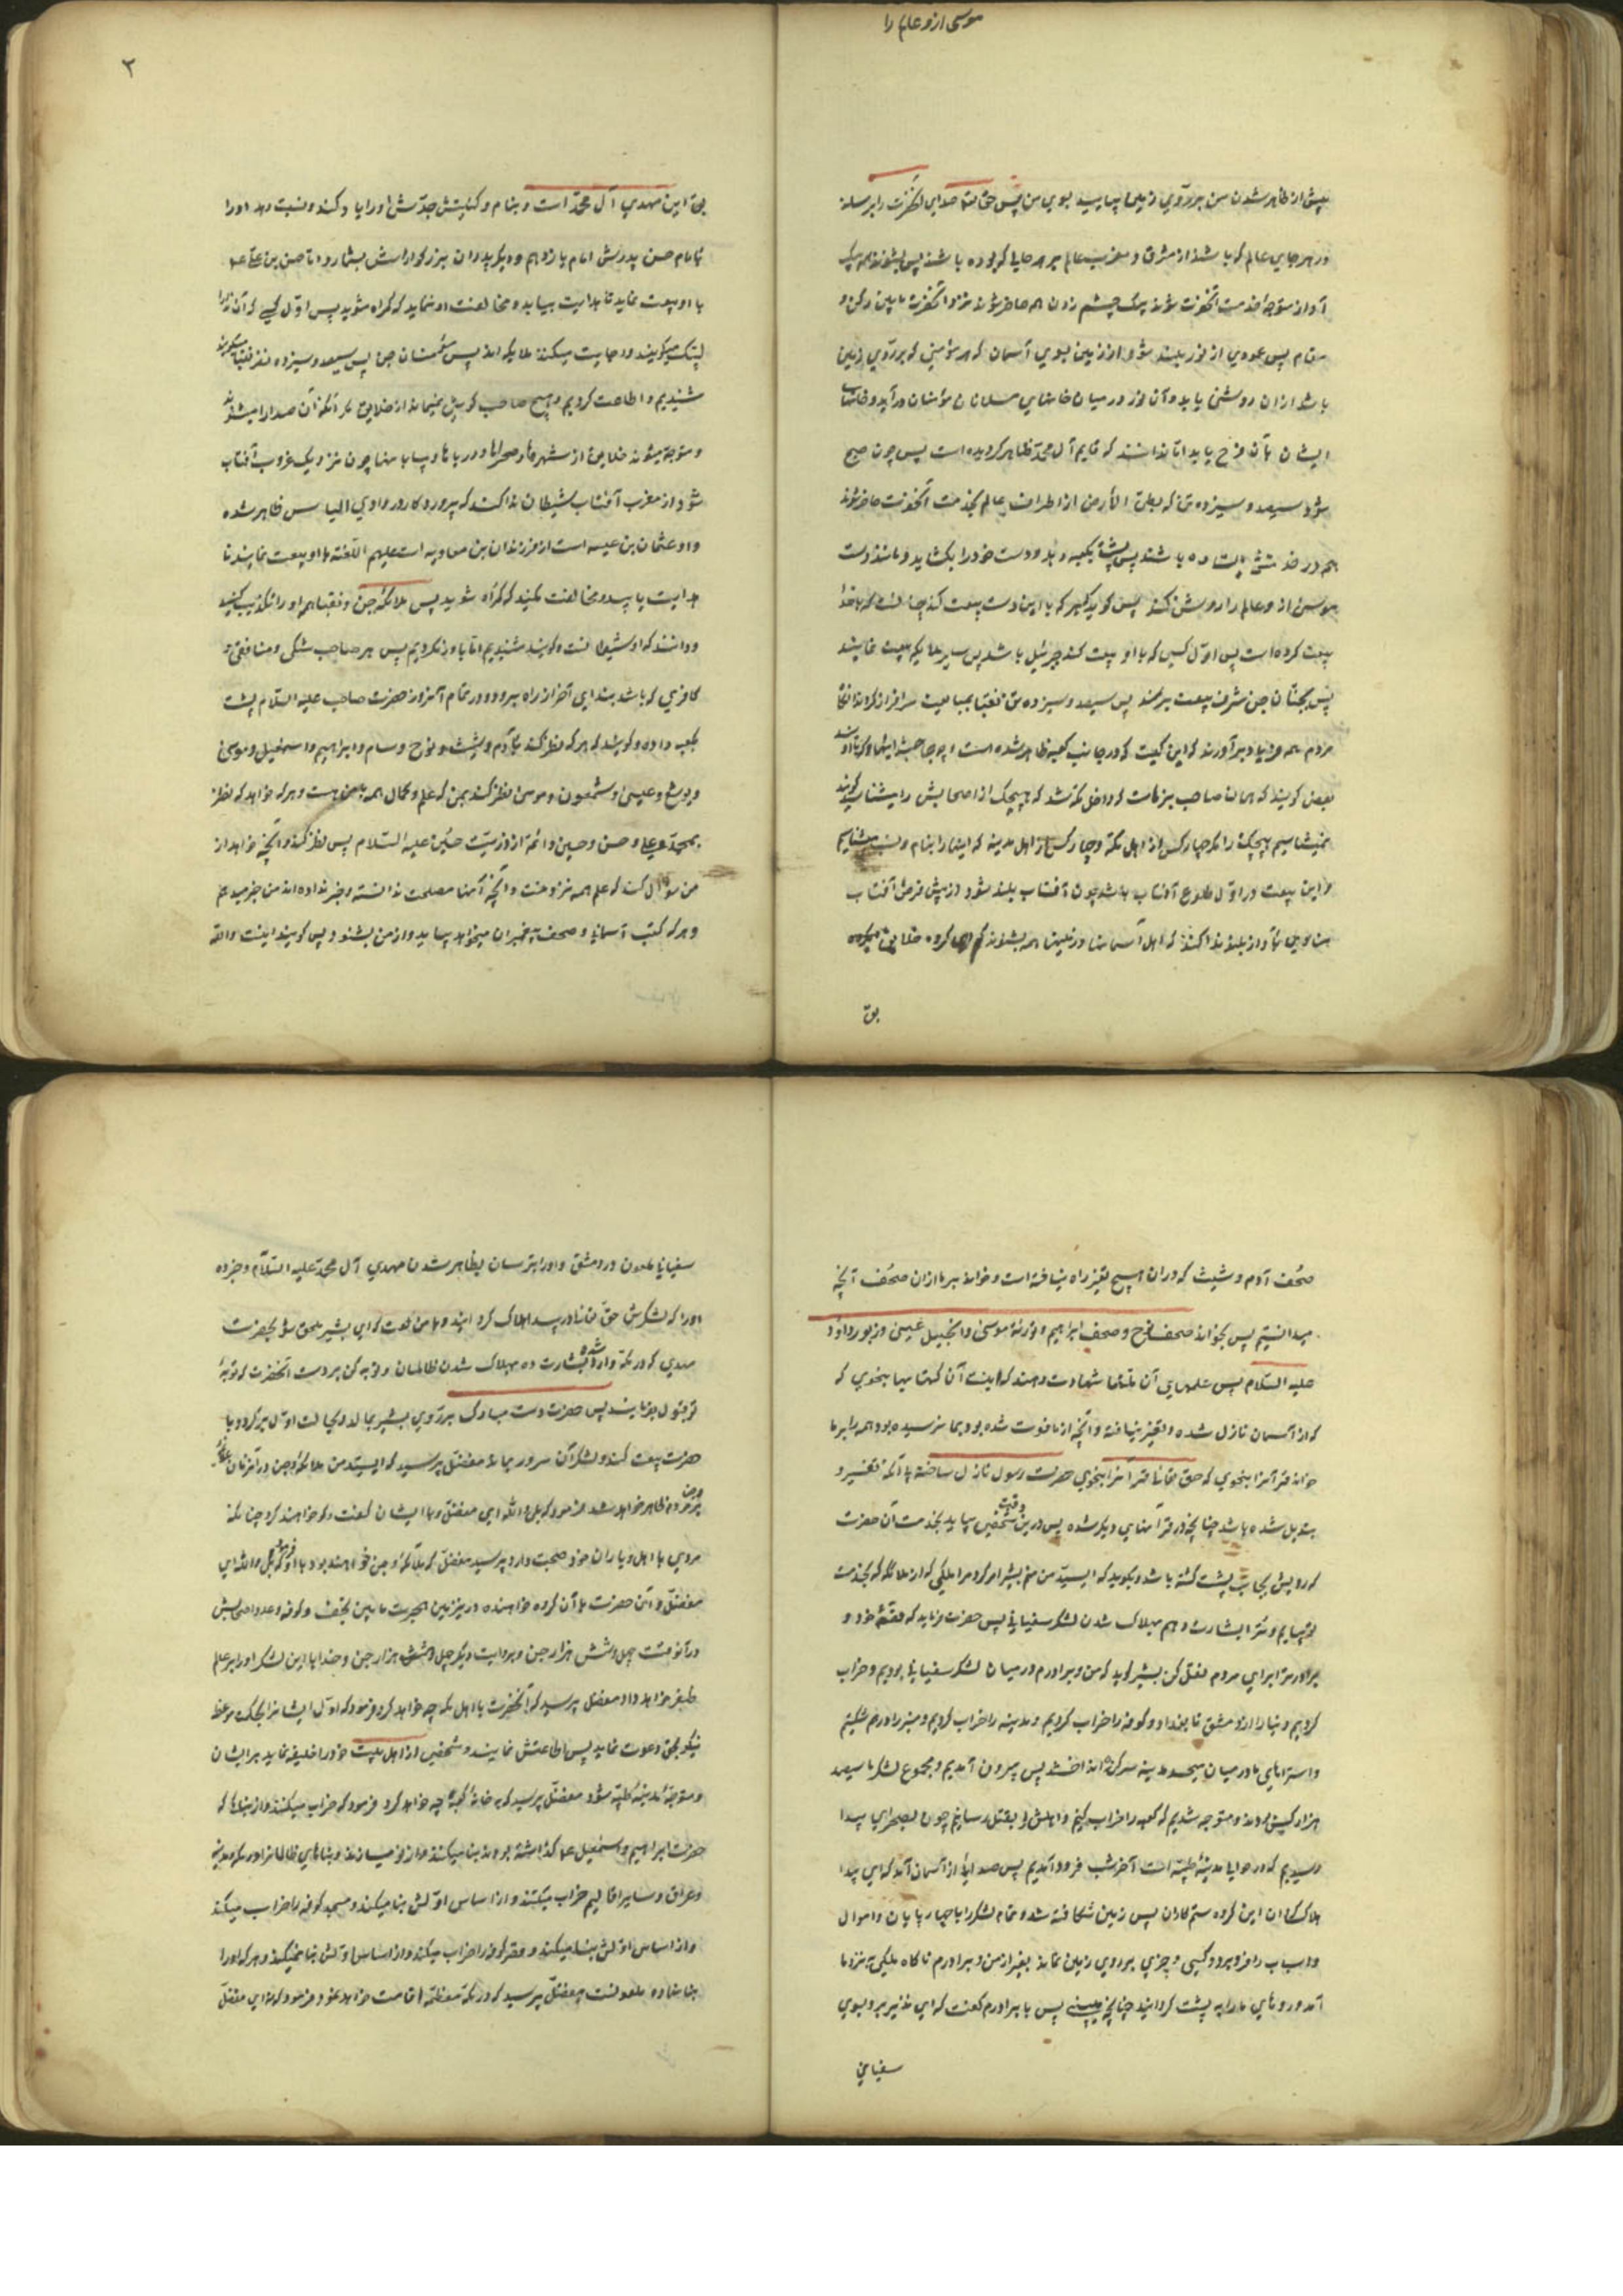 موسی ازو عالم را
پیش از ظاهر شدن من بر روی زمین بیایید بسوی من پس حق تعالی صدای آنحضرت را برساند
در هر جای عالم که باشند از مشرق و مغرب عالم بر هر حالی که بوده باشند پس بشنوند همه بیک
آواز متوجه خدمت آنحضرت شوند بیک چشم زدن همه حاضر شوند نزد آنحضرت مابین رکن و
مقام پس عمودی از نور بلند شود از زمین بسوی آسمان که هر مؤمنی که بر روی زمین
باشد ازان روشنی یابد و آن نور در میان خانهای مسلمانان مؤمنان درآید و جانهای
ایشان بآن فرح یابد اما ندانند که قایم آل محمد ظاهر گردیده است پس چون صبح
شود سیصد و سیزده تن که بطی الأرض از اطراف عالم بخدمت آنحضرت حاضر شوند
همه در خدمتش ایستاده باشند پس پشت بکعبه دهد و دست خود را بکشاید و مانند دست
موسی ازو عالم را روشن کند پس گوید که هر که با این دست بیعت کند چنانست که با خدا
بیعت کرده است پس اول کسی که با او بیعت کند جبرئیل باشد پس سایر ملایکه بیعت نمایند
پس نجبای جن شرف بیعت برند پس سیصد و سیزده تن نقبا بمبایعت سرافراز گردند آنگاه
مردم مکه فریاد برآورند که این کیست که در جانب کعبه ظاهر شده است و چه جماعتند اینها که با اویند
بعضی گویند که همان صاحب بزهاست که داخل مکه شد که هیچیک از اصحابش را میشناسید گویند
نمیشناسیم هیچیک را مگر چهار کس از اهل مکه و چهار کس از اهل مدینه که اینها را بنام و نسب میشناسیم
و این بیعت در اول طلوع آفتاب باشد چون آفتاب بلند شود از پیش قرص آفتاب
منادیی بآواز بلند ندا کند که اهل آسمانها و زمینها همه بشنوند که ای گروه خلایق
بق
۲
این مهدی آل محمد است و بنام و کنیتش جدش او را یاد کند و نسبت دهد او را
بامام حسن پدرش امام یازدهم و دیگر پدران بزرگوارانش بشمارد تا حسین بن علی
با او بیعت نماید تا هدایت بیابید و مخالفت او منمایید که گمراه شوید پس اول کسی که آن ندا را
لبیک میگویند و اجابت میکنند ملایکه اند پس مؤمنان جن پس سیصد و سیزده نفر نقبا میگویند
شنیدیم و اطاعت کردیم و هیچ صاحب گوش نمیماند از خلایق مگر آنکه آن صدا را میشنود
و متوجه میشوند خلایق از شهرها و صحراها و دریاها و بیابانها چون نزدیک غروب آفتاب
شود از مغرب آفتاب شیطان ندا کند که پروردگار در وادی الیابس ظاهر شده
و او عثمان بن عنبسه است از فرزندان بن معاویه است علیهم اللعنة با او بیعت نمایید تا
هدایت یابید و مخالفت مکنید که گمراه شوید پس ملائکه و جن و نقبا همه او را تکذیب کنند
و دانند که او شیطانست و گویند شنیدیم اما باور نکردیم پس هر صاحب شکی و منافقی و
کافری که باشد بندای آخر از راه برود و در تمام آنروز حضرت صاحب علیه السلام پشت
بکعبه داده و گوید که هر که نظر کند بآدم و شیث و نوح و سام و ابراهیم و اسمعیل و موسی
و یوشع و عیسی و شمعون و موسی نظر کند بمن که علم و کمال همه با من است و هر که خواهد که نظر کند
بمحمد و علی و حسن و حسین و ائمه از ذریت حسین علیه السلام پس نظر کند و آنچه خواهد از
من سؤال کند که علم همه نزد منست و آنچه آنها مصلحت ندانسته و خبر نداده اند من خبر میدهم
و هر که کتب آسمانی و صحف پیغمبران میخواهد بیاید و از من بشنود پس گویند اینست والله
صحف آدم و شیث که دران هیچ تغییر راه نیافته است و خواند بر ما ازان صحف آنچه
نمیدانستیم پس بخواند صحف نوح و صحف ابراهیم و تورته موسی و انجیل عیسی و زبور داود
علیه السلام پس علمای آن ملتها شهادت دهند که اینست آن کتابها بنحوی که
که از آسمان نازل شده و تغییر نیافته و آنچه از ما فوت شده بود بما نرسیده بود همه را بر ما
خواند قرآنرا بنحوی که حق تعالی قرآنرا بنحوی حضرت رسول نازل ساخته بی آنکه تغییر و
تبدیل شده باشد چنانچه در قرآنهای دیگر شده پس درین وقت شخصی بیاید بخدمت آن حضرت
که رویش بجانب پشت گشته باشد و بگوید که ای سید من منم بشیر امر کرد مرا ملکی که از ملائکه که بخدمت
تو بیایم و ترا بشارت دهم بهلاک شدن لشکر سفیانی پس حضرت فرماید که قصهٔ خود و
برادرت را برای مردم نقل کن بشیر گوید که من و برادرم در میان لشکر سفیانی بودیم و خراب
کردیم دنیا را از دمشق تا بغداد و کوفه را خراب کردیم و مدینه را خراب کردیم و منبر را درهم شکستیم
و استرهای ما در میان مسجد مدینه سرگین انداختند پس بیرون آمدیم و مجموع لشکر ما سیصد
هزار کس بودند و متوجه شدیم که کعبه را خراب کنیم و اهلش را بقتل رسانیم چون بصحرای بیدا
رسیدیم که در حوالی مدینهٔ طیبه است آخر شب فرود آمدیم پس صدایی از آسمان آمد که ای بیدا
هلاک گردان این گروه ستمکاران پس زمین شکافته شد و تمام لشکر را با چهارپایان و اموال
و اسباب را فرو برد و کسی و چیزی بر روی زمین نماند بغیر از من و برادرم ناگاه ملکی نزد ما
آمد و روهای ما را به پشت گردانید چنانچه میبینی پس با برادرم گفت که ای نذیر برو بسوی
سفیانی
سفیانی ملعون در دمشق و او را بترسان بظاهر شدن مهدی آل محمد علیه السلام و خبر ده
او را که لشکرش حق تعالی در بیدا هلاک گردانید و با من گفت که ای بشیر ملحق شو بحضرت
مهدی که در مکه وارد شده بشارت ده بهلاک شدن ظالمان و توبه کن بر دست آنحضرت که توبهٔ
تو قبول فرمایند پس حضرت دست مبارک بر روی بشیر بمالد و بحالت اول برگردد و با
حضرت بیعت کند و لشکر آن سرور بماند مفضل پرسید که ای سید من ملائکه و جن در آنزمان
بر مردم ظاهر خواهد شد فرمود که بلی والله ای مفضل و با ایشان گفت و گو خواهند کرد چنانکه
مردی با اهل و یاران خود صحبت دارد پرسید مفضل که ملائکه و جن خواهند بود با او فرمود بلی والله ای
مفضل و آن حضرت با آن گروه خواهند در زمین هجرت مابین نجف و کوفه و عدد اصحابش
درآنوقت چهل و شش هزار جن و بروایت دیگر چهل و شش هزار جن و خدا با این لشکر او را بر عالم
ظفر خواهد داد مفضل پرسید که آنحضرت با اهل مکه چه خواهد کرد فرمود که اول ایشانرا بحکمت و موعظهٔ
نیکو بحق دعوت نماید پس اطاعتش نمایند و شخصی از اهل بیت خود را خلیفه نماید بر ایشان
و متوجهٔ مدینهٔ طیبه شود مفضل پرسید که خانهٔ کعبه چه خواهد کرد فرمود که خراب میکند و از بنایی که
حضرت ابراهیم و اسمعیل عما گذاشته بودند بنا میکند و از نو میسازند و بناهای ظالمانرا در مکه و مدینه
و عراق و سایر اقالیم خراب میکند و از اساس اولش بنا میکند و مسجد کوفه را خراب میکند
و از اساس اولش بنا میکند و قصر کوفه را خراب میکند و از اساس اولش بنا نمیکند و هر که او را
بنا نهاده ملعونست مفضل پرسید که در مکه معظمه اقامت خواهد نمود فرمود که نه ای مفضل